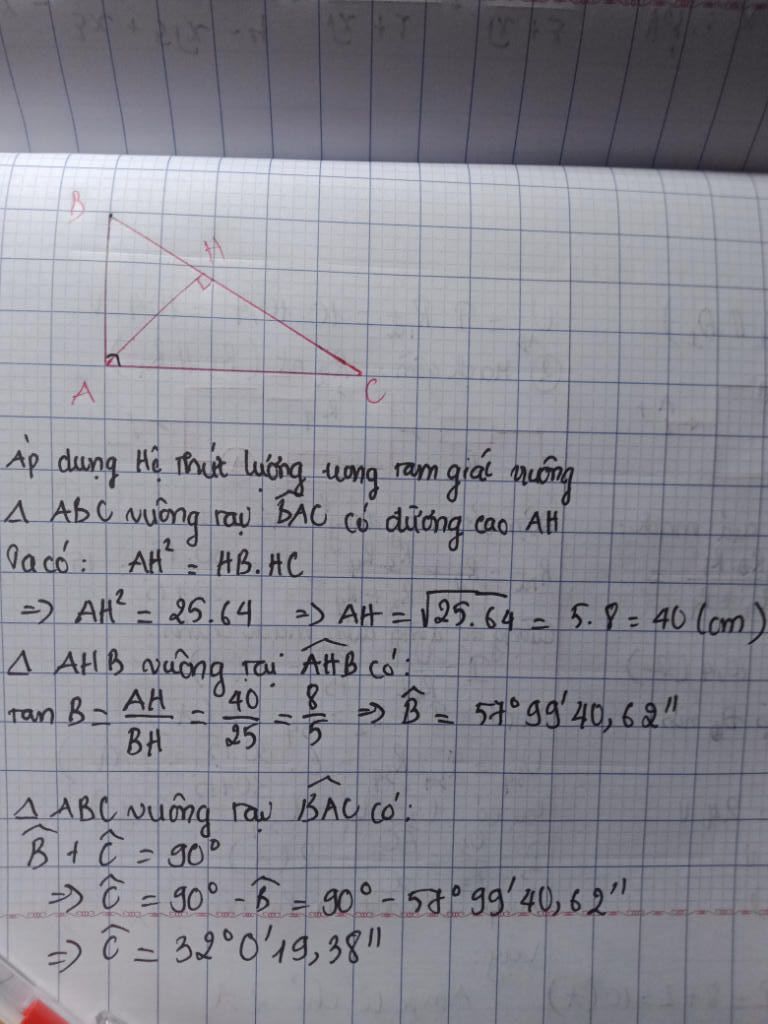 B
H
A
C
Áp dụng Hệ thức lượng trong tam giác vuông
Δ ABC vuông tại \widehat{BAC} có đường cao AH
Ta có: AH² = HB.HC
=> AH² = 25.64 => AH = √25.64 = 5.8 = 40 (cm)
Δ AHB vuông tại \widehat{AHB} có:
tan B = AH/BH = 40/25 = 8/5 => B̂ = 57°99'40,62"
Δ ABC vuông tại \widehat{BAC} có:
B̂ + Ĉ = 90°
=> Ĉ = 90° - B̂ = 90° - 57°99'40,62"
=> Ĉ = 32°0'19,38"